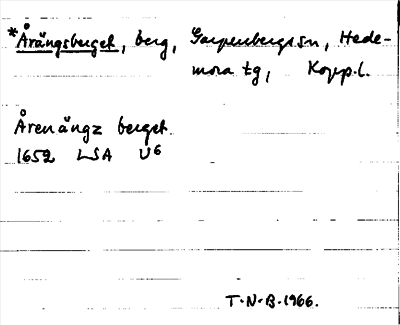 *Årängsberget, berg, Garpenbergs sn, Hede-
mora tg, Kopp.l.
Årenängz berget
1652 LSA U6
T.N.B.1966.